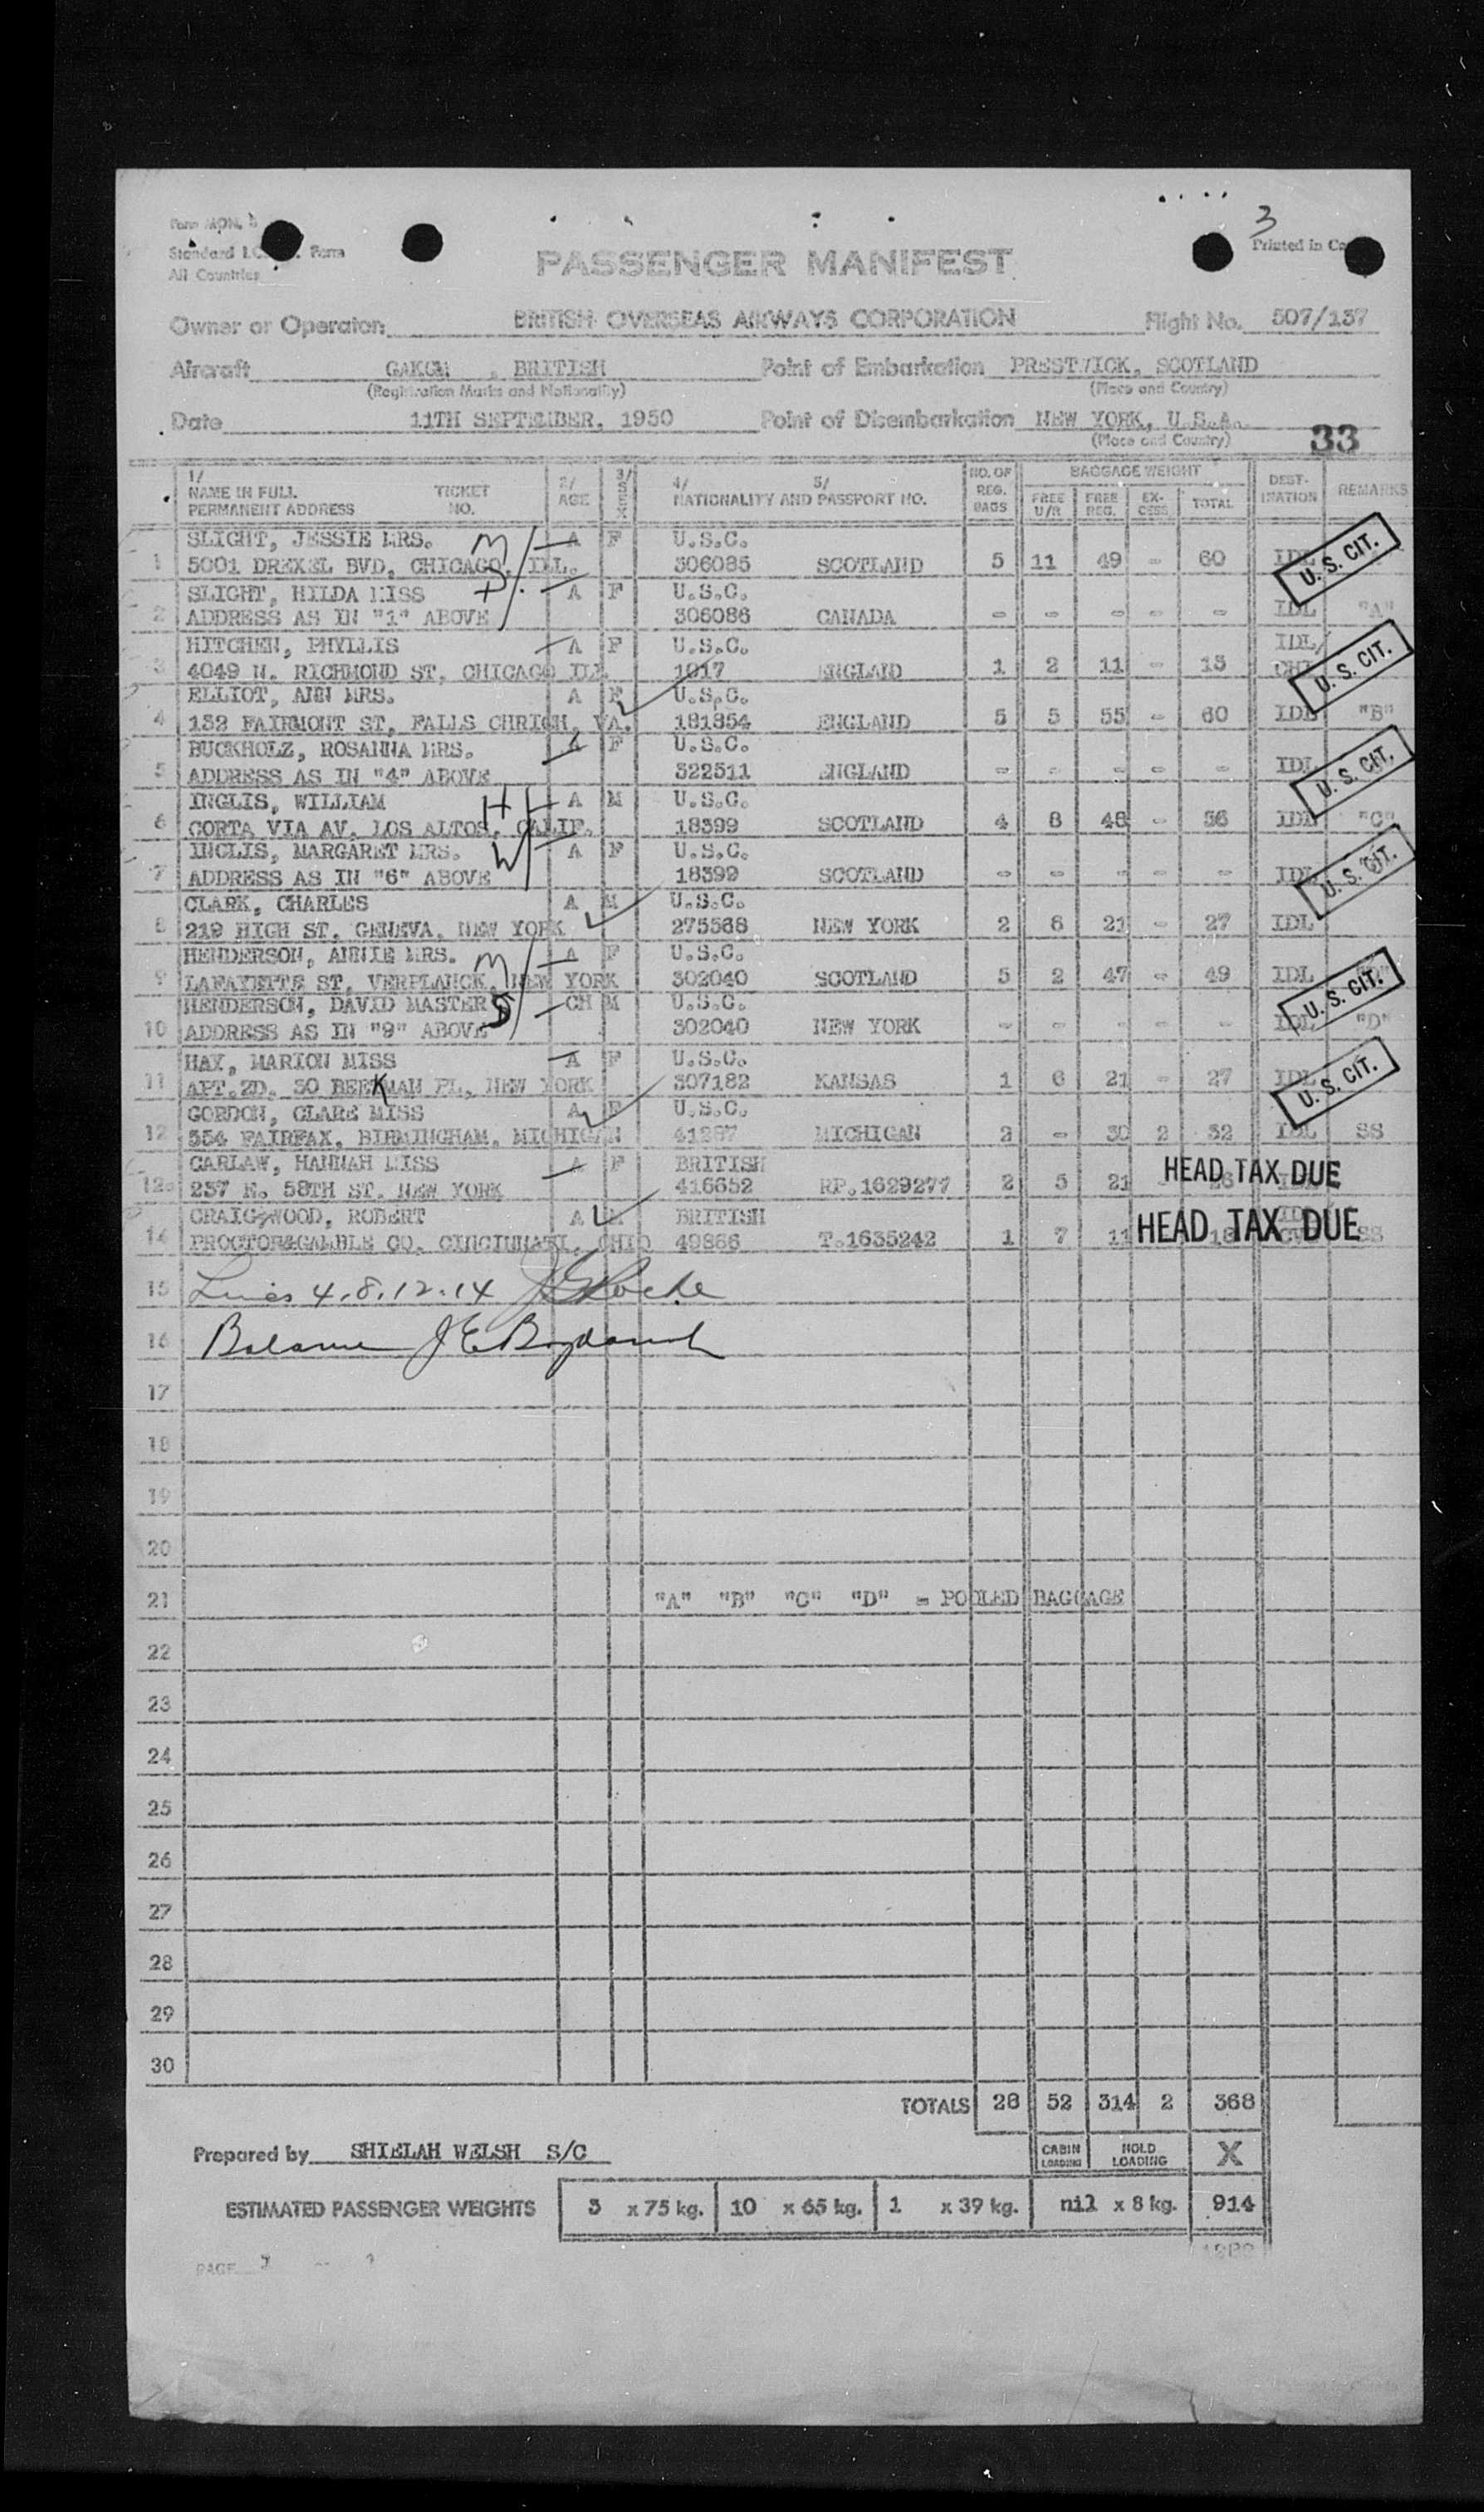 3
Form MON. 5
Standard I.C. Form
All Countries
Printed in Ca
PASSENGER MANIFEST
Owner or Operator BRITISH OVERSEAS AIRWAYS CORPORATION Flight No. 507/137
Aircraft GAKGM , BRITISH Point of Embarkation PRESTWICK, SCOTLAND
(Registration Marks and Nationality) (Place and Country)
Date 11TH SEPTEMBER, 1950 Point of Disembarkation NEW YORK, U.S.A.
(Place and Country) 33
1/ NAME IN FULL PERMANENT ADDRESS TICKET NO. 2/ AGE 3/ SEX 4/ 5/ NATIONALITY AND PASSPORT NO. NO. OF REG. BAGS BAGGAGE WEIGHT FREE U/R FREE REG. EX-CESS TOTAL DEST-INATION REMARKS
SLIGHT, JESSIE MRS. M A F U.S.C.
1 5001 DREXEL BVD, CHICAGO, ILL. 306085 SCOTLAND 5 11 49 - 60 IDL U. S. CIT.
SLIGHT, HILDA MISS D A F U.S.C.
2 ADDRESS AS IN "1" ABOVE 306086 CANADA - - - - - IDL "A"
HITCHEN, PHYLLIS A F U.S.C. IDL/
3 4049 N. RICHMOND ST, CHICAGO ILL. 1917 ENGLAND 1 2 11 - 13 CHI U. S. CIT.
ELLIOT, ANN MRS. A F U.S.C.
4 132 FAIRMONT ST, FALLS CHRICH, VA. 181354 ENGLAND 5 5 55 - 60 IDL "B"
BUCKHOLZ, ROSANNA MRS. A F U.S.C.
5 ADDRESS AS IN "4" ABOVE 322511 ENGLAND - - - - - IDL U. S. CIT.
INGLIS, WILLIAM H A M U.S.C.
6 CORTA VIA AV. LOS ALTOS, CALIF. 18399 SCOTLAND 4 8 48 - 56 IDL "C"
INGLIS, MARGARET MRS. W A F U.S.C.
7 ADDRESS AS IN "6" ABOVE 18399 SCOTLAND - - - - - IDL U. S. CIT.
CLARK, CHARLES A M U.S.C.
8 219 HIGH ST, GENEVA, NEW YORK 275568 NEW YORK 2 6 21 - 27 IDL
HENDERSON, ANNIE MRS. M A F U.S.C.
9 LAFAYETTE ST, VERPLANCK, NEW YORK 302040 SCOTLAND 5 2 47 - 49 IDL "D" U. S. CIT.
HENDERSON, DAVID MASTER S CH M U.S.C.
10 ADDRESS AS IN "9" ABOVE 302040 NEW YORK - - - - - IDL "D"
HAY, MARION MISS A F U.S.C.
11 APT.2D. 30 BEEKMAN PL, NEW YORK 307182 KANSAS 1 6 21 - 27 IDL U. S. CIT.
GORDON, CLARE MISS A F U.S.C.
12 554 FAIRFAX, BIRMINGHAM, MICHIGAN 41287 MICHIGAN 2 - 30 2 32 IDL SS
CARLAW, HANNAH MISS A F BRITISH
12a 237 E. 58TH ST. NEW YORK 416652 RP.1629277 2 5 21 26 HEAD TAX DUE
CRAIG-WOOD, ROBERT A M BRITISH
14 PROCTOR&GAMBLE CO. CINCINNATI, OHIO 49866 T.1635242 1 7 11 18 SS HEAD TAX DUE
15 Lines 4.8.12.14 J G Roche
16 Balance J E
17
18
19
20
21 "A" "B" "C" "D" = POOLED BAGGAGE
22
23
24
25
26
27
28
29
30
TOTALS 28 52 314 2 368
Prepared by SHIELAH WELSH S/C CABIN LOADING HOLD LOADING X
ESTIMATED PASSENGER WEIGHTS 3 x 75 kg. 10 x 65 kg. 1 x 39 kg. nil x 8 kg. 914
PAGE